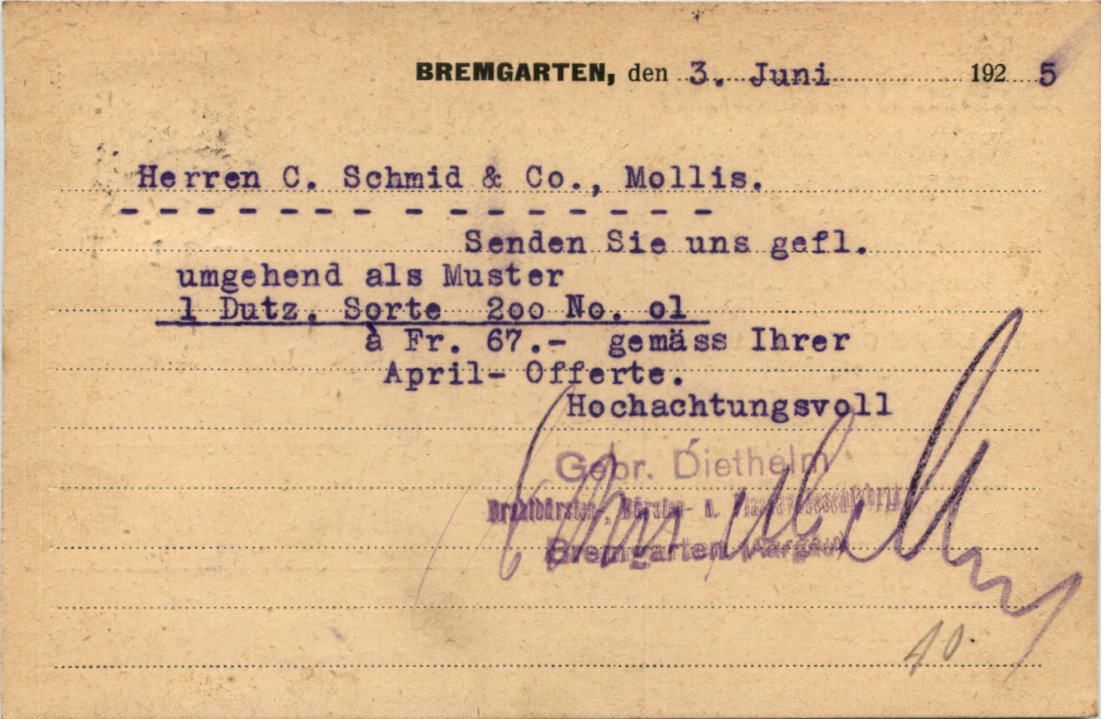 BREMGARTEN, den 3. Juni 1925
Herren C. Schmid & Co., Mollis.
- - - - - - - - - - - - - - -
Senden Sie uns gefl.
umgehend als Muster
1 Dutz. Sorte 2oo No. o1
à Fr. 67.- gemäss Ihrer
April- Offerte.
Hochachtungsvoll
Gebr. Diethelm
Drahtbürsten-, Bürsten- u.
Bremgarten (Aargau)
10